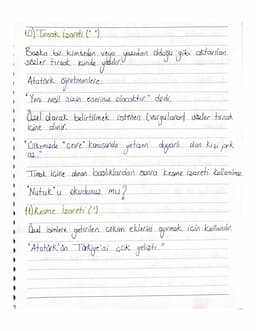 10) Tırnak İşareti (" ")
Başka bir kimseden veya yazıdan olduğu gibi aktarılan
sözler tırnak içinde yazılır.
Atatürk öğretmenlere:
"Yeni nesil sizin eseriniz olacaktır." dedi.
Özel olarak belirtilmek istenen (vurgulanan) sözler tırnak
içine alınır.
"Ülkemizde "çevre" konusunda yetişen duyarlı olan kişi pek
az."
Tırnak içine alınan başlıklardan sonra kesme işareti kullanılmaz
"Nutuk"u okudunuz mu?
11) Kesme İşareti (')
Özel isimlere getirilen çekim eklerini ayırmak için kullanılır.
"Atatürk'ün Türkiye'si çok gelişti."